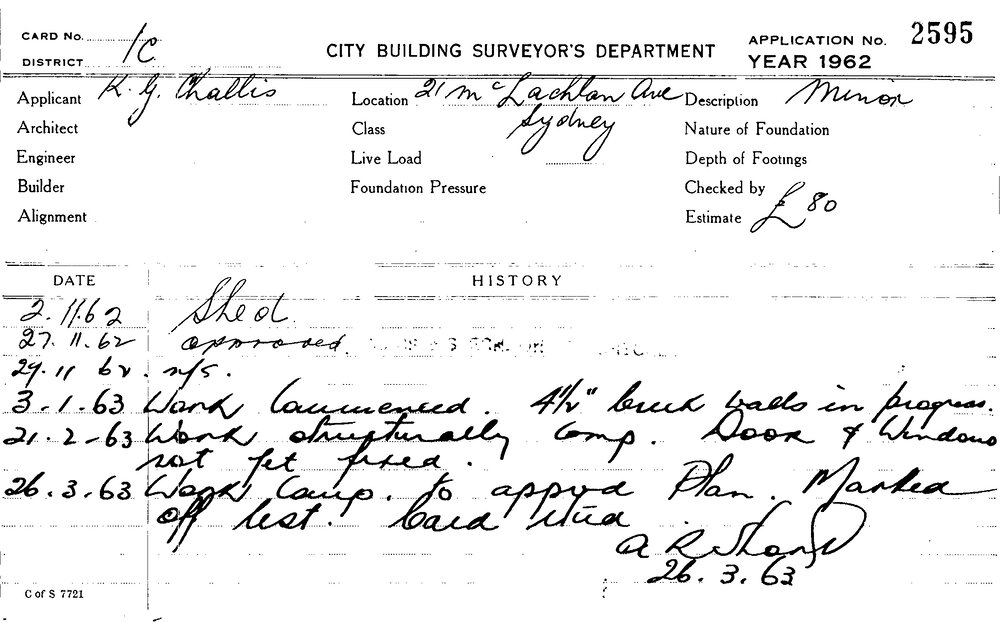 CARD No.
DISTRICT 1C
CITY BUILDING SURVEYOR'S DEPARTMENT
APPLICATION No. 2595
YEAR 1962
Applicant K. G. Challis
Location 21 McLachlan Ave Sydney
Description Minor
Architect
Class
Nature of Foundation
Engineer
Live Load
Depth of Footings
Builder
Foundation Pressure
Checked by
Alignment
Estimate £80
DATE HISTORY
2.11.62 Shed.
27.11.62 approved.
29.11.62. n/s.
3.1.63 Work Commenced. 4½" brick walls in progress.
21.2-63 Work structurally Comp. Door & Windows
not yet fixed.
26.3.63 Work Comp. to apprvd Plan. Marked
off list. Card
26.3.63
C of S 7721